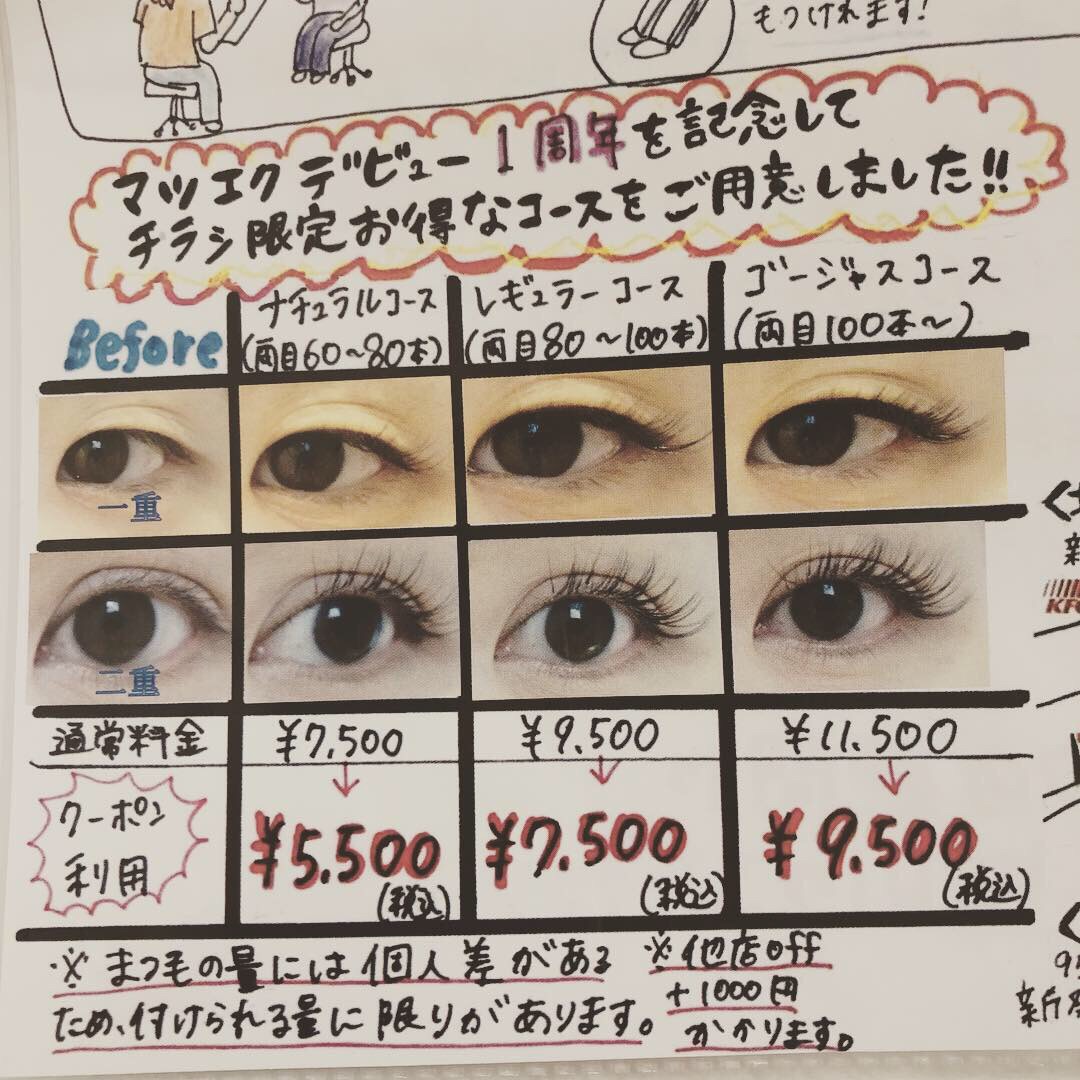 もつけれます!
マツエクデビュー1周年を記念して
チラシ限定お得なコースをご用意しました!!
Before
ナチュラルコース
(両目60〜80本)
レギュラーコース
(両目80〜100本)
ゴージャスコース
(両目100本〜)
一重
二重
通常料金
¥7,500
¥9,500
¥11.500
クーポン
利用
¥5.500
(税込)
¥7.500
(税込)
¥9.500
(税込)
※まつ毛の量には個人差がある
ため、付けられる量に限りがあります。
※他店off
+1000円
かかります。
新
KF
新